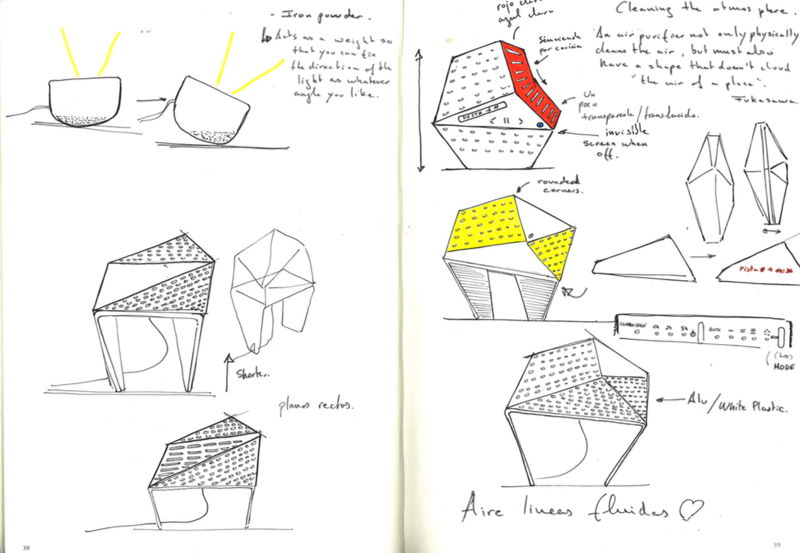 - Iron powder.
Acts as a weight so
that you can fix
the direction of the
light as whatever
angle you like.
Shorter.
planos rectos.
38
rojo claro
azul claro
Cleaning the atmosphere.
An air purifier not only physically
cleans the air, but must also
have a shape that doesn't cloud
"the air of a place".
Fukasawa.
por encima
Un
poco
transparente/translucido.
invisible
screen when
off.
rounded
corners.
Pista # 4
MODE
Alu/White Plastic.
Aire lineas fluidas
39